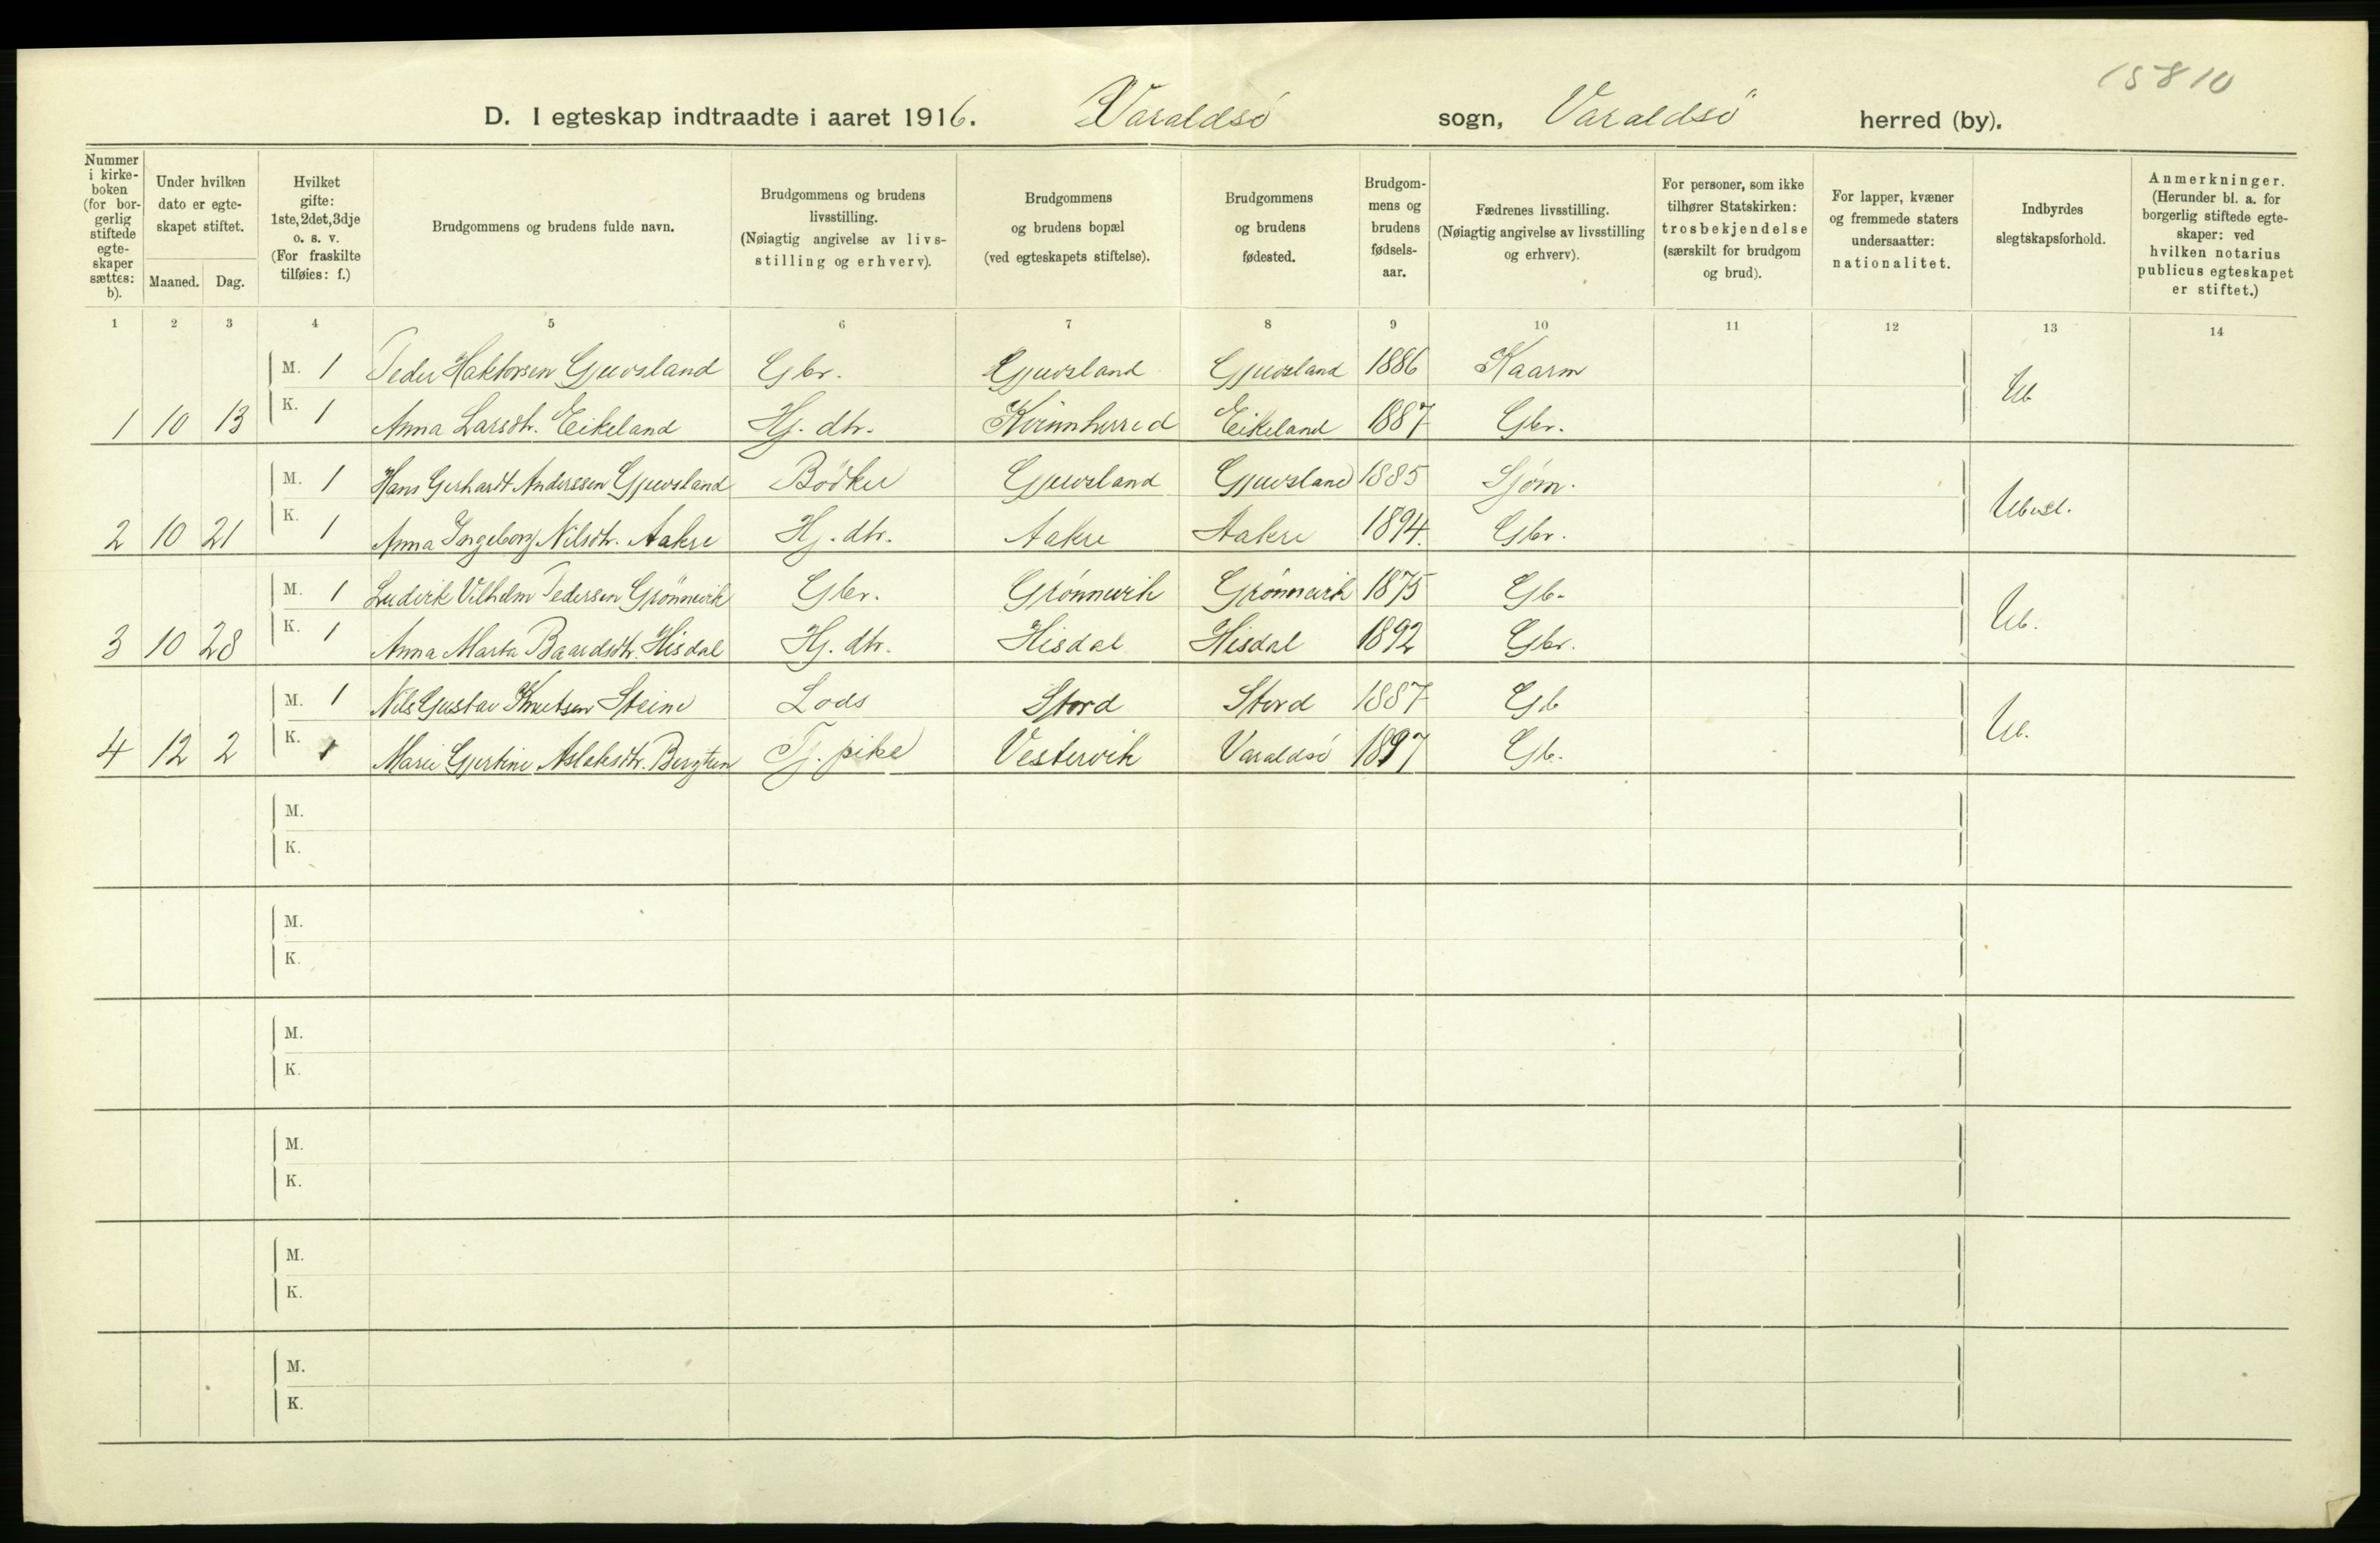 15810
D. I egteskap indtraadte i aaret 1916. Varaldsö sogn, Varaldsö herred (by).
Nummer i kirke-boken (for bor-gerlig stiftede egte-skaper sættes: b).
Under hvilken dato er egte-skapet stiftet.
Maaned. Dag.
Hvilket gifte: 1ste, 2det, 3dje o. s. v. (For fraskilte tilføies: f.)
Brudgommens og brudens fulde navn.
Brudgommens og brudens livsstilling. (Nøiagtig angivelse av livs-stilling og erhverv).
Brudgommens og brudens bopæl (ved egteskapets stiftelse).
Brudgommens og brudens fødested.
Brudgom-mens og brudens fødsels-aar.
Fædrenes livsstilling. (Nøiagtig angivelse av livsstilling og erhverv).
For personer, som ikke tilhører Statskirken: trosbekjendelse (særskilt for brudgom og brud).
For lapper, kvæner og fremmede staters undersaatter: nationalitet.
Indbyrdes slegtskapsforhold.
Anmerkninger. (Herunder bl. a. for borgerlig stiftede egte-skaper: ved hvilken notarius publicus egteskapet er stiftet.)
1 2 3 4 5 6 7 8 9 10 11 12 13 14
M. 1 Peder Haktorsen Gjuvsland Gbr. Gjuvsland Gjuvsland 1886 Kaarm Ub
1 10 13 K. 1 Anna Larsdtr. Eikeland Hj. dtr. Kvinnherred Eikeland 1887 Gbr.
M. 1 Hans Gerhardt Anderssen Gjuvsland Bödker Gjuvsland Gjuvsland 1885 Sjøm. Ubesl.
2 10 21 K. 1 Anna Ingeborg Nilsdtr. Aakre Hj. dtr. Aakre Aakre 1894. Gbr.
M. 1 Ludvik Vilhelm Pedersen Grönnevik Gbr. Grönnevik Grönnevik 1875 Gb. Ub.
3 10 28 K. 1 Anna Marta Baardsdtr. Hisdal Hj. dtr. Hisdal Hisdal 1892 Gbr.
M. 1 Nils Gustav Knutsen Steine Lods Stord Stord 1887 Gb Ub.
4 12 2 K. 1 Marie Gjertine Aslaksdtr. Bergtun Tj. pike Vestervik Varaldsö 1897 Gb.
M.
K.
M.
K.
M.
K.
M.
K.
M.
K.
M.
K.